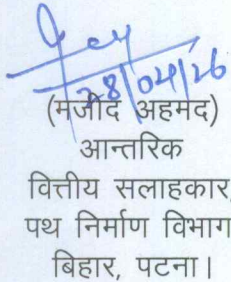 28/04/26
(मजीद अहमद)
आन्तरिक
वित्तीय सलाहकार,
पथ निर्माण विभाग
बिहार, पटना।